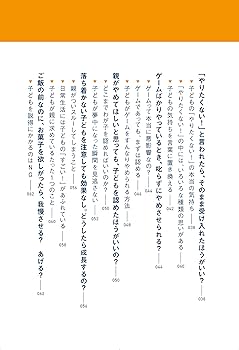 「やりたくない！」と言われたら、そのまま受け入れたほうがいい？ 038
▼子どもの「やりたくない！」の本当の気持ち
▼「やりたくない！」の中には、いろいろな種類の思いがある
▼子どもの気持ちを言葉に置き換える 042
ゲームばかりやっているとき、叱らずにやめさせられる？ 044
▼ゲームって本当に悪影響なの？
▼ゲームであっても、まずは認める
▼子どもがゲームをすんなりやめられる方法
親がやめてほしいと思っても、子どもを認めたほうがいいの？ 050
▼どこまでわが子を認めればいいのか？
▼子どもが夢中になった瞬間を見逃さない
落ち着きがない子どもを注意しても効果なし。どうしたら成長するの？ 054
▼親がついスルーしてしまうこと 056
▼日常生活には子どもの「すごい！」があふれている
▼子どもが親に求めているたった1つのこと
ご飯の前なのに、お菓子を欲しがったら、我慢させる？ あげる？ 062
▼子どもを説得にかかるのはNG！